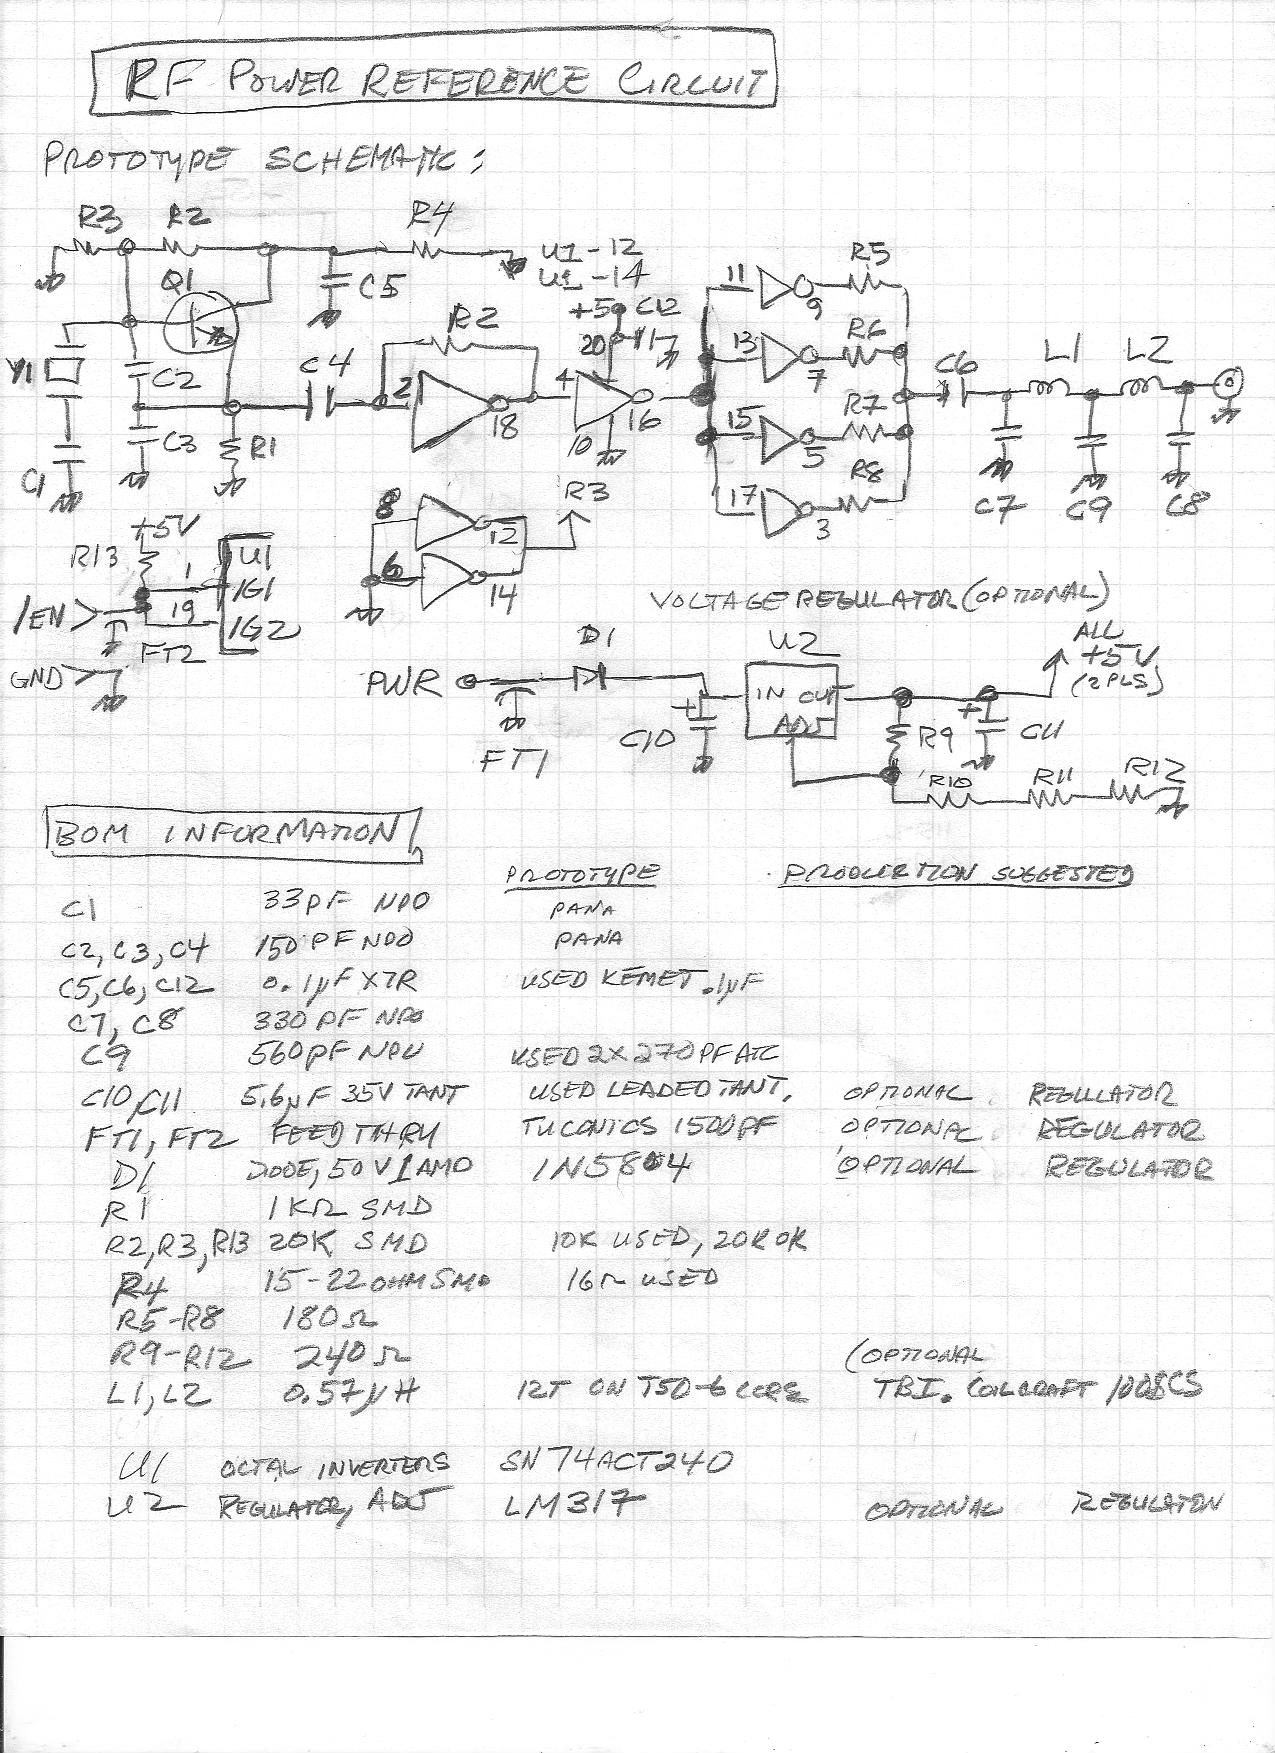 RF POWER REFERENCE CIRCUIT
PROTOTYPE SCHEMATIC:
R3 R2 R4
U1-12
U1-14
Q1 C5
+5 C12
R2
20
11 9 R5
13 7 R6
15 5 R7
17 3 R8
Y1 C2 C4
2 18 4 16 10
C6 L1 L2
C3 R1
C1
C7 C9 C8
+5V
R13
1 U1
1G1
/EN 19
1G2
FT2
GND
8 12 R3
6 14
VOLTAGE REGULATOR (OPTIONAL)
PWR D1 U2
IN OUT
ADJ
ALL
+5V
(2 PLS)
FT1 C10 R9 C11
R10 R11 R12
BOM INFORMATION
PROTOTYPE PRODUCTION SUGGESTED
C1 33PF NPO PANA
C2, C3, C4 150 PF NPO PANA
C5, C6, C12 0.1µF X7R USED KEMET .1µF
C7, C8 330 PF NPO
C9 560PF NPO USED 2X 270PF ATC
C10, C11 5.6µF 35V TANT USED LEADED TANT. OPTIONAL REGULATOR
FT1, FT2 FEEDTHRU TUCONICS 1500PF OPTIONAL REGULATOR
D1 DIODE, 50V 1 AMP 1N5804 OPTIONAL REGULATOR
R1 1KΩ SMD
R2, R3, R13 20K SMD 10K USED, 20K OK
R4 15-22 OHM SMD 16Ω USED
R5-R8 180Ω
R9-R12 240Ω (OPTIONAL
L1, L2 0.57µH 12T ON T50-6 CORE TBI. COILCRAFT 1008CS
U1 OCTAL INVERTERS SN74ACT240
U2 REGULATOR, ADJ LM317 OPTIONAL REGULATOR